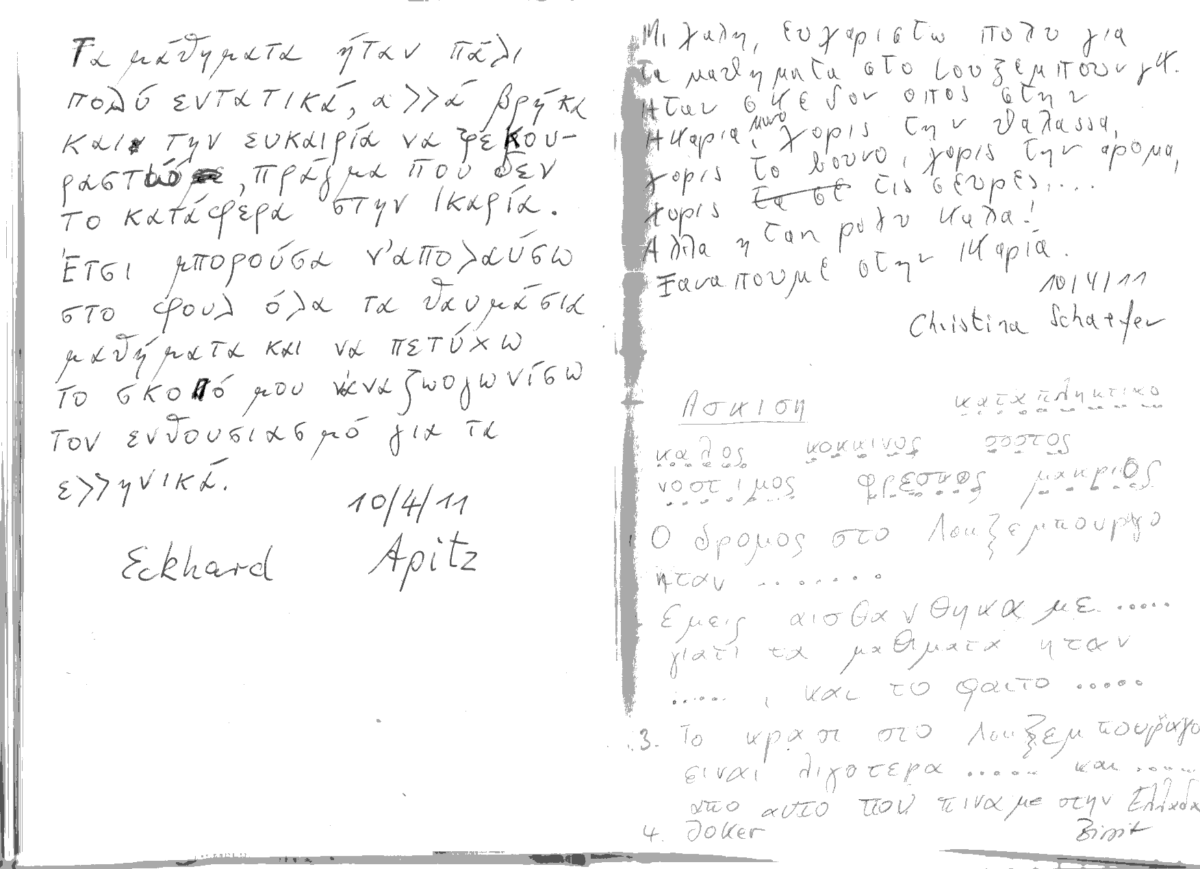 Τα μάθηματα ήταν πάλι
πολύ εντατικά, αλλά βρήκα
και την ευκαιρία να ξεκου-
ραστώ, πράγμα που δεν
το κατάφερα στην Ικαρία.
Έτσι μπορούσα ν'απολαύσω
στο φουλ όλα τα θαυμάσια
μαθήματα και να πετύχω
το σκοπό μου να αναζωογωνίσω
τον ενθουσιασμό για τα
ελληνικά.
10/4/11
Eckhard Apitz
Μιχαλη, ευχαριστω πολυ για
τα μαθηματα στο Λουξεμπουργκ.
Ηταν σχεδον οπος στην
Ηκαρια, μονο χορις την θαλασσα,
χορις το βουνο, χορις την αρομα,
χορις τα σε τις σευρες,....
Αλλα ηταη πολυ καλα!
Ξαναπουμε στην Ικαρία.
10/4/11
Christina Schaefer
Ασκιση καταπληκτικο
καλος κοκκινος ζεστος
νοστιμος φρεσκος μακριος
Ο δρομος στο Λουξεμπουργο
ηταν ........
Εμεις αισθανθηκαμε .....
γιατι τα μαθιματα ηταν
....., και το φαιτο .....
3. Το κρασι στο Λουξεμπουργο
ειναι λιγοτερα ..... και .....
απο αυτο που πιναμε στην Ελλαδα
4. Joker Birgit